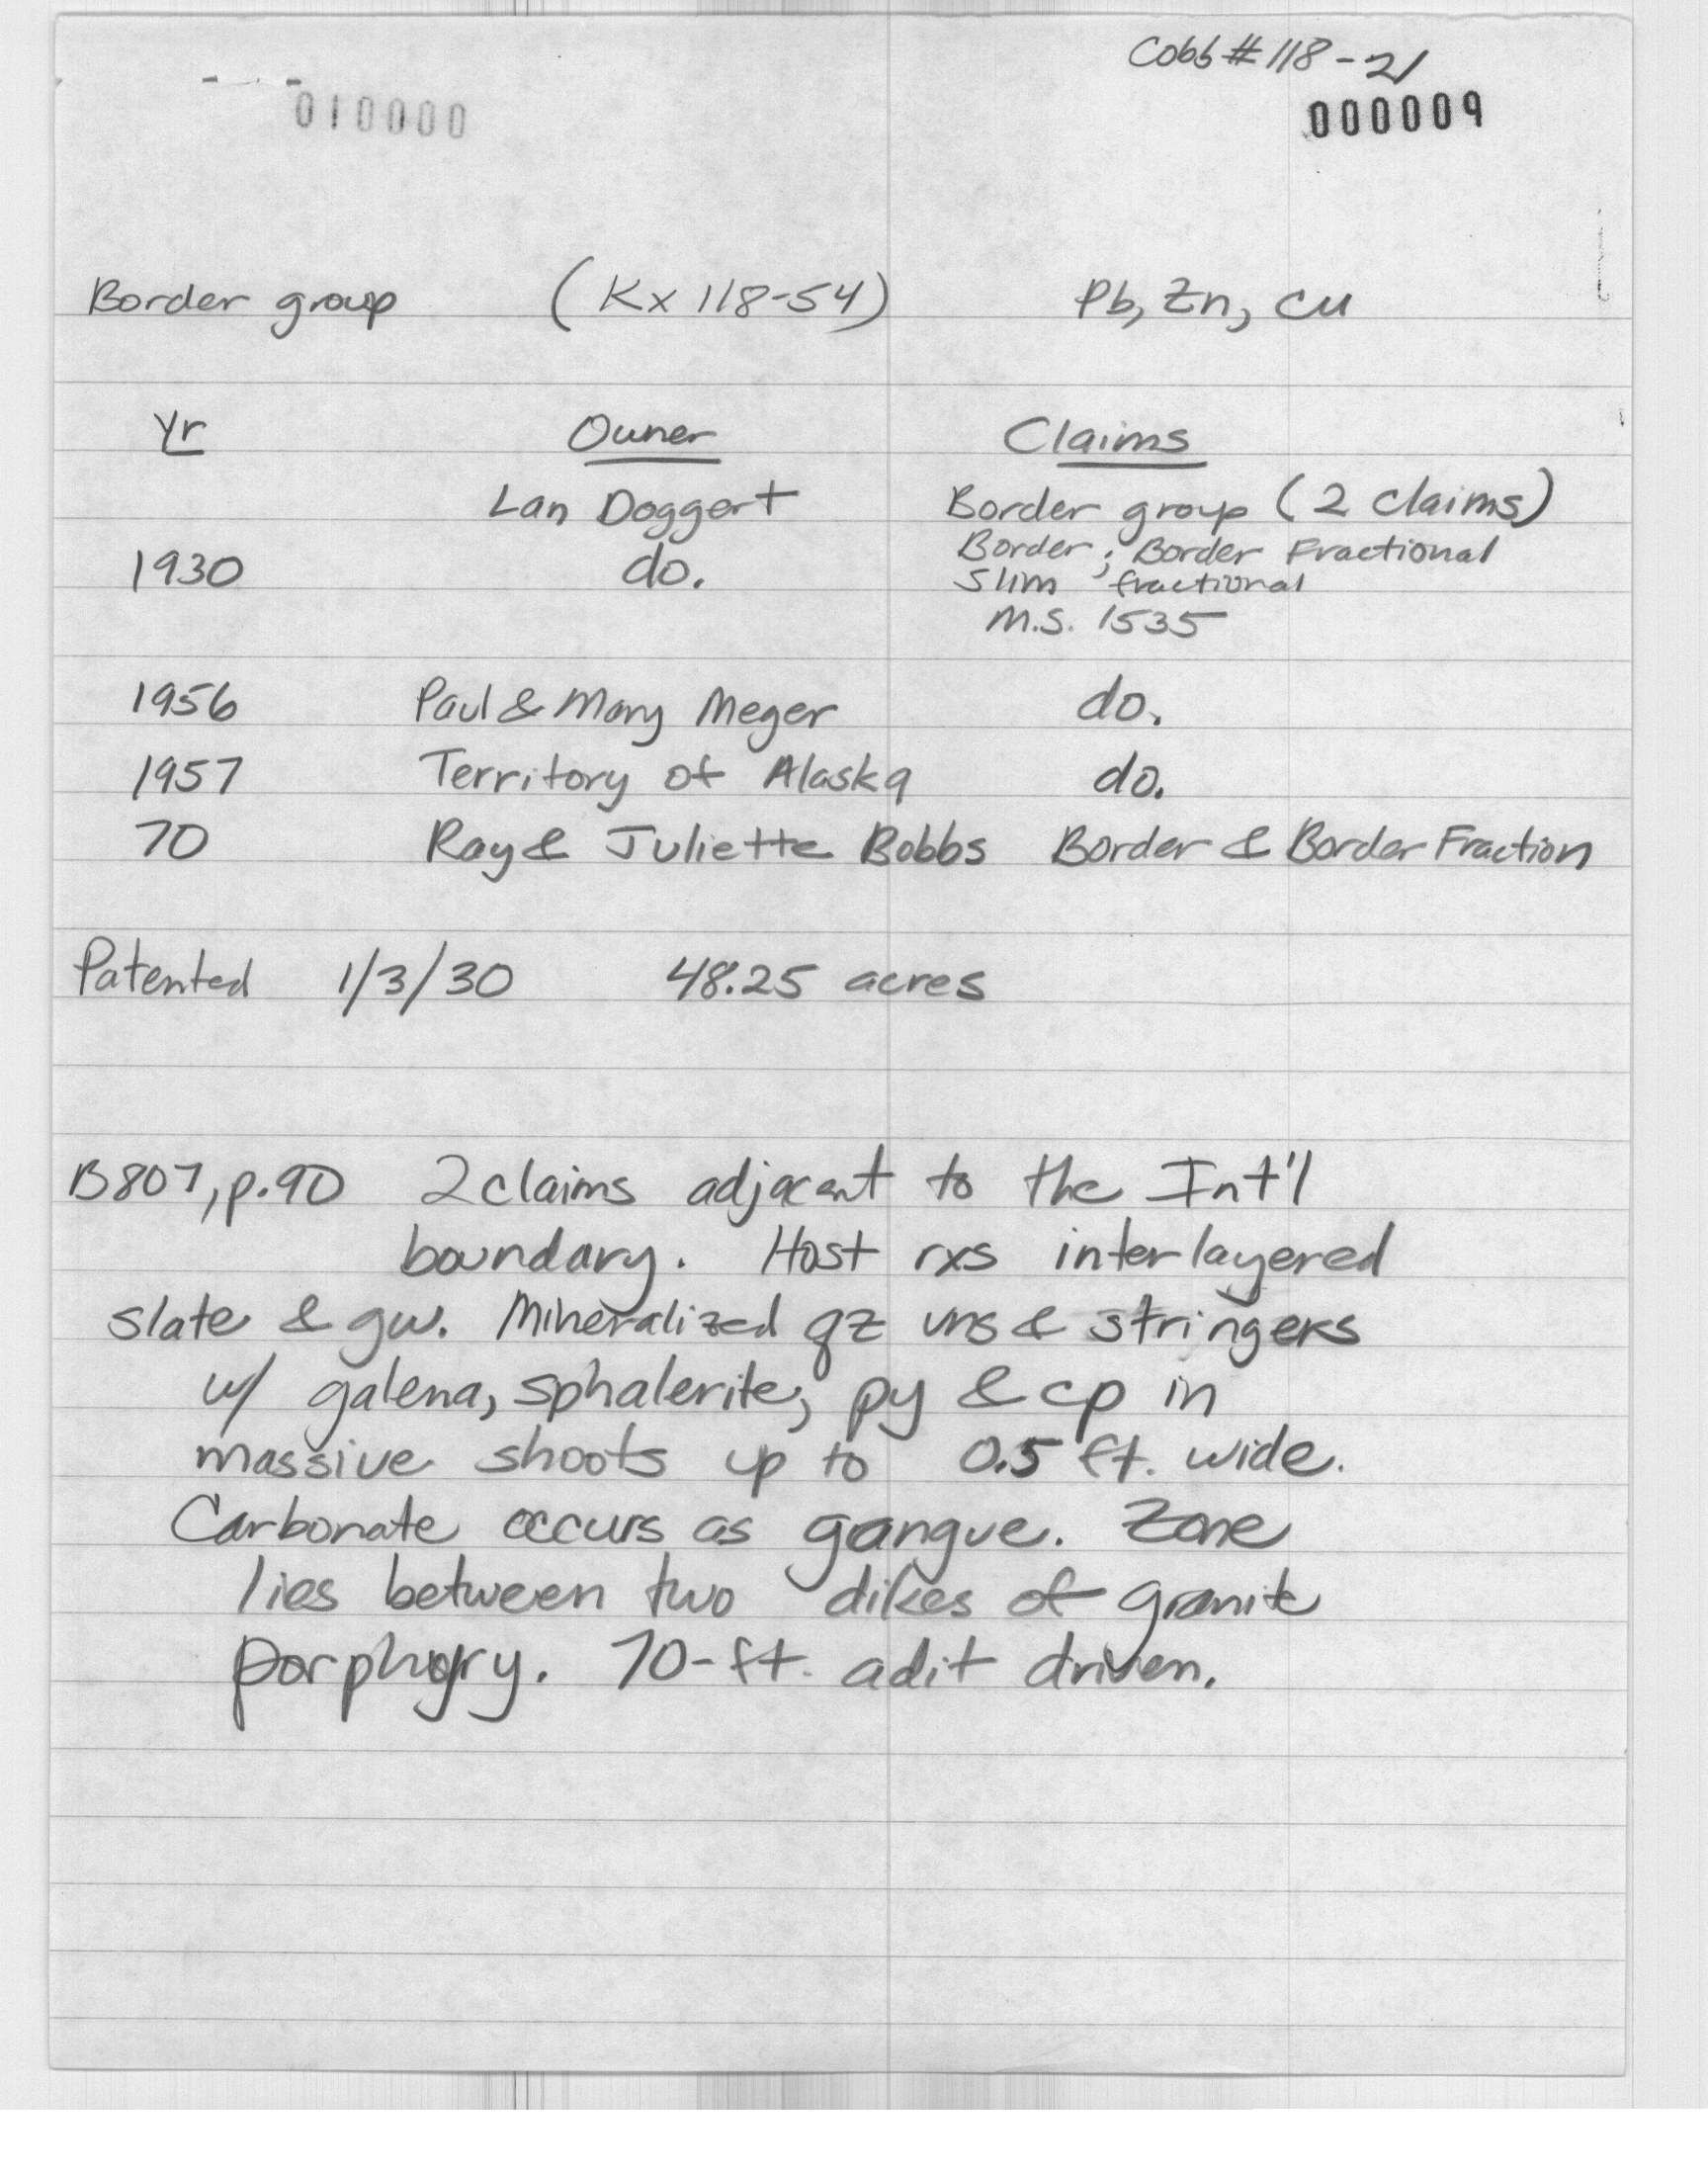 Cobb # 118-21
010000
000009
Border group (Kx 118-54) Pb, Zn, Cu
Yr Owner Claims
Lan Doggert Border group (2 claims)
1930 do. Border; Border Fractional
Slim fractional
M.S. 1535
1956 Paul & Mary Meger do.
1957 Territory of Alaska do.
70 Ray & Juliette Bobbs Border & Border Fraction
Patented 1/3/30 48.25 acres
B807, p.90 2 claims adjacent to the Int'l
boundary. Host rxs interlayered
slate & gw. Mineralized qz vns & stringers
w/ galena, sphalerite, py & cp in
massive shoots up to 0.5 ft. wide.
Carbonate occurs as gangue. Zone
lies between two dikes of granite
porphyry. 70-ft. adit driven.